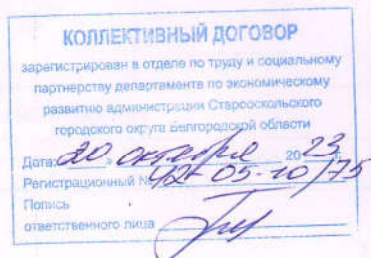 КОЛЛЕКТИВНЫЙ ДОГОВОР
зарегистрирован в отделе по труду и социальному
партнерству департамента по экономическому
развитию администрации Старооскольского
городского округа Белгородской области
Дата: 20 октября 2023
Регистрационный № 42-05-10/75
Попись
ответственного лица